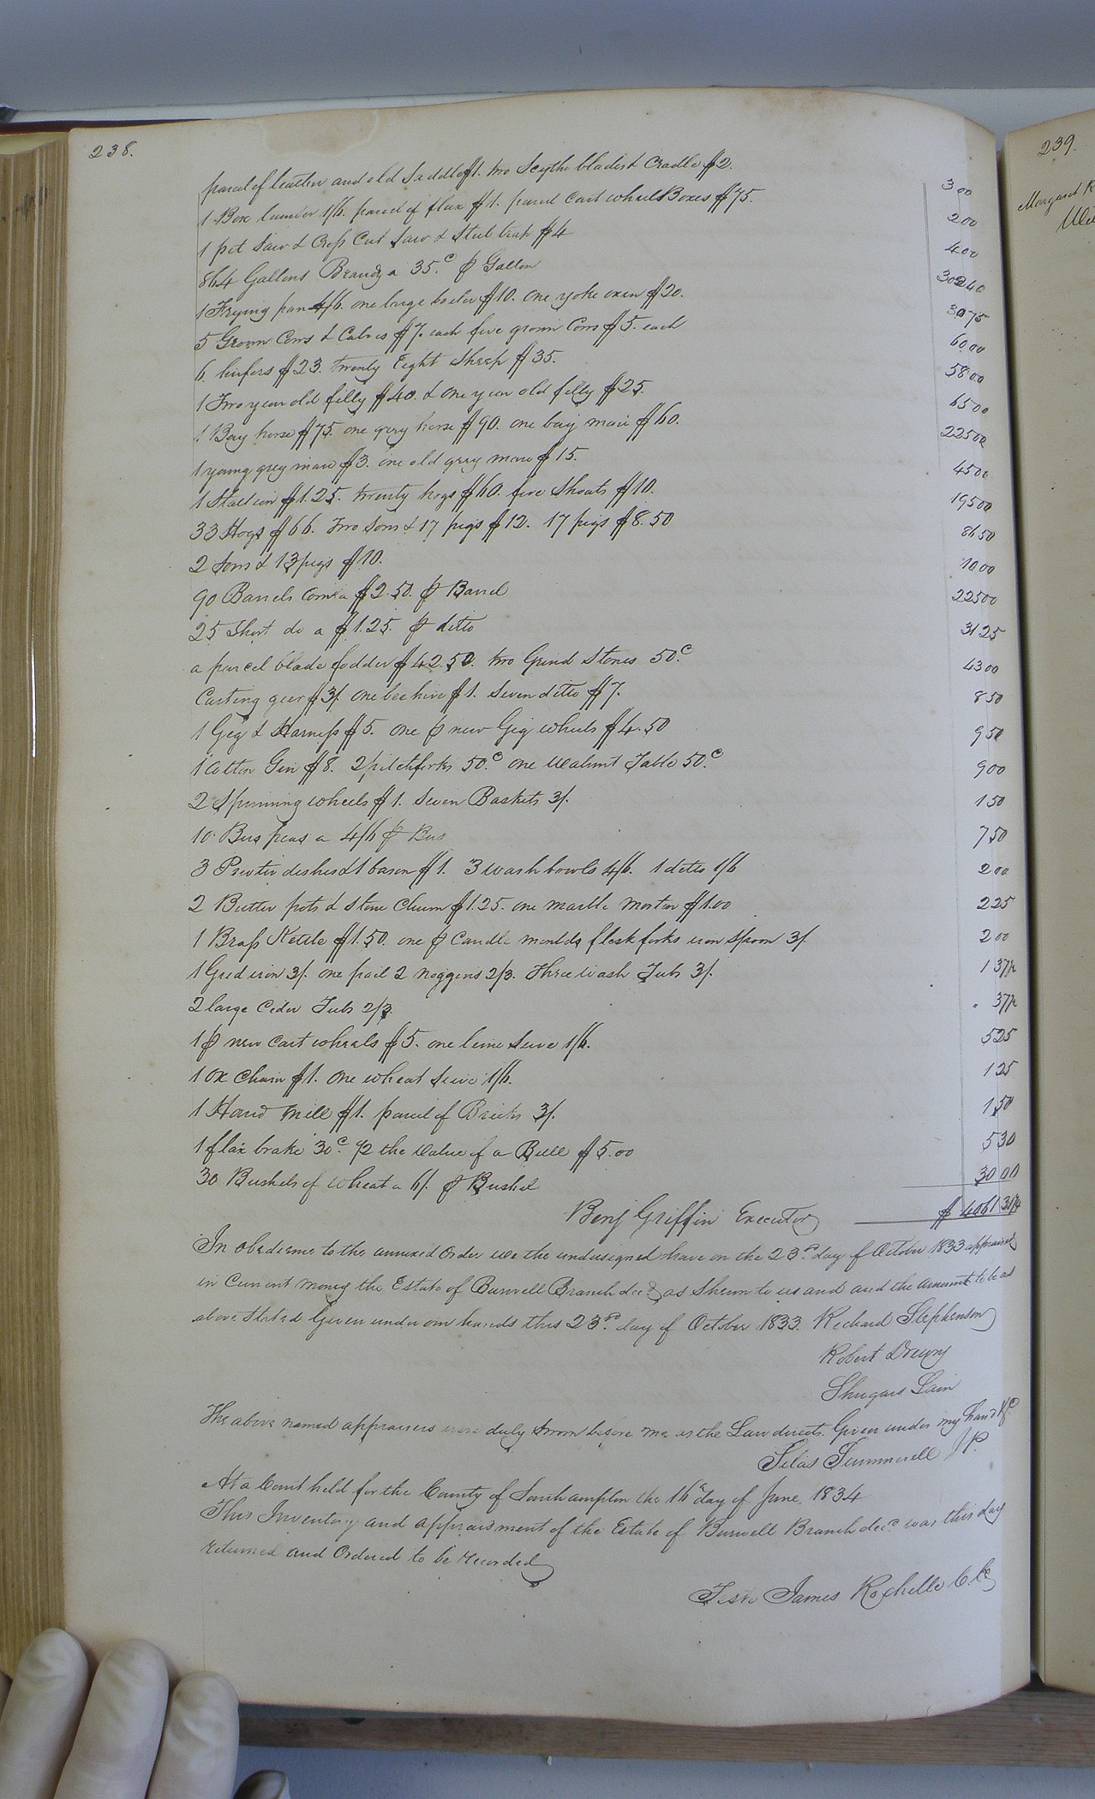 238.
parcel of leather and old Saddle $1. two Scythe blades & Cradle $2. 300
1 Box lumber 1/6. parcel of flax $1. parcel Cart wheel Boxes $.75. 200
1 pit Saw & Cross Cut Saw & Steel trap $4 400
864 Gallons Brandy a 35.c ⅌ Gallon 30240
1 Frying pan 4/6. one large boiler $10. one yoke oxen $20. 3075
5 Grown Cows & Calves $7. each five grown Cows $5. each 6000
6. heifers $23. twenty Eight Sheep $35. 5800
1 Two year old filly $40. & one year old filly $25. 6500
1 Bay horse $75. one grey horse $90. one bay mare $60. 22500
1 young grey mare $3. one old gray mare $15. 4500
1 Stallion $125. twenty hogs $60. five Shoats $10. 19500
33 Hogs $66. Two Sows & 17 pigs $12. 17 pigs $8.50 8650
2 Sows & 13 pigs $10. 1000
90 Barrels Corn a $2.50. ⅌ Barrel 22500
25 Short do a $1.25. ⅌ ditto 3125
a parcel blade fodder $42.50. two Grind Stones 50.c 4300
Carting gear $3/. one bee hive $1. Seven ditto $7. 850
1 Gig & Harness $5. one ⅌ new Gig wheels $4.50 950
1 Cotton Gin $8. 2 pitchforks 50.c one Walnut Table 50.c 900
2 Spinning wheels $1. Seven Baskets 3/. 150
10 Bus peas a 4/6 ⅌ Bus 750
3 Pewter dishes & 1 bason $1. 3 wash bowls 4/6. 1 ditto 1/6 200
2 Butter pots & Stone Churn $1.25. one marble Mortar $1.00 225
1 Brass Kettle $1.50. one ⅌ Candle moulds flesk forks iron Spoon 3/ 200
1 Grid iron 3/. one pail 2 noggens 2/3. Three wash Tubs 3/. 1 37½
2 large Ceder Tubs 2/3 . 37½
1 ⅌ new Cart wheels $5. one lime Seive 1/6. 525
1 Ox Chain $1. One wheat Seive 1/6. 125
1 Hand Mill $1. parcel of Bricks 3/. 150
1 flax brake 30c. ½ the Value of a Bull $5.00 530
30 Bushels of Wheat a 6/. ⅌ Bushel 3000
Benj Griffin Executor $ 4061 31½
In obedience to the annexed Order we the undersigned have on the 23rd. day of October 1833 appraised
in Current money the Estate of Burwell Branch decd as Shewn to us and and the amount to be as
above Stated Given under our hands this 23rd. day of October 1833. Richard Stephenson
Robert Drewry
Shugars Lain
The above named appraisers were duly Sworn before me as the Law directs. Given under my hand &c
Silas Summerell J P.
At a Court held for the County of Southampton the 16th day of June 1834
This Inventory and appraisment of the Estate of Burwell Branch decd. was this day
returned and Ordered to be recorded
Teste James Rochelle C. C.
239.
Margaret